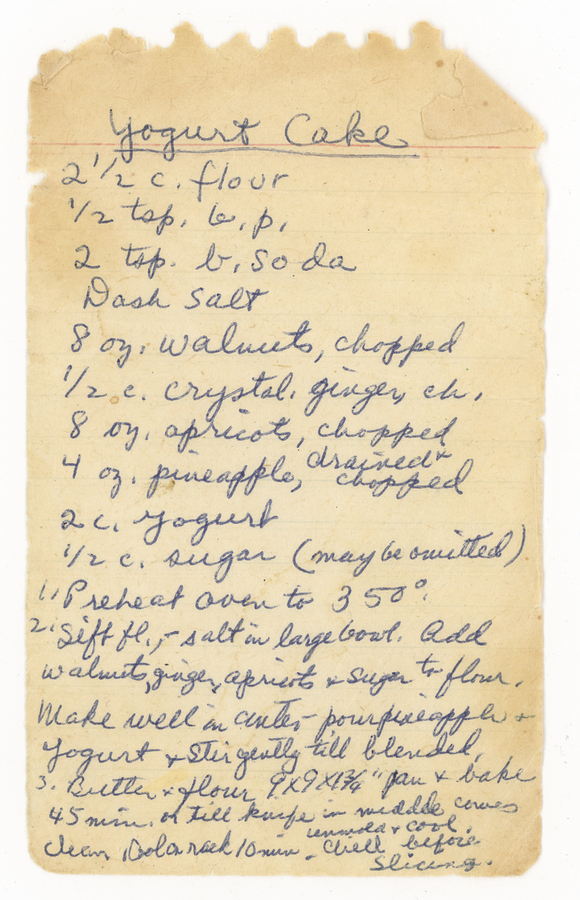 Yogurt Cake
2 1/2 c. flour
1/2 tsp. b.p.
2 tsp. b. soda
Dash salt
8 oz. walnuts, chopped
1/2 c. crystal. ginger, ch.
8 oz. apricots, chopped
4 oz. pineapple, drained + chopped
2 c. yogurt
1/2 c. sugar (may be omitted)
1. Preheat oven to 350°.
2. Sift fl., - salt in large bowl. Add
walnuts, ginger, apricots + sugar to flour.
Make well in center - pour pineapple +
yogurt + stir gently till blended.
3. Butter + flour 9x9x1 3/4" pan + bake
45 min. or till knife in middle comes
clean. Cool on rack 10 min - unmold + cool. Chill before
slicing.